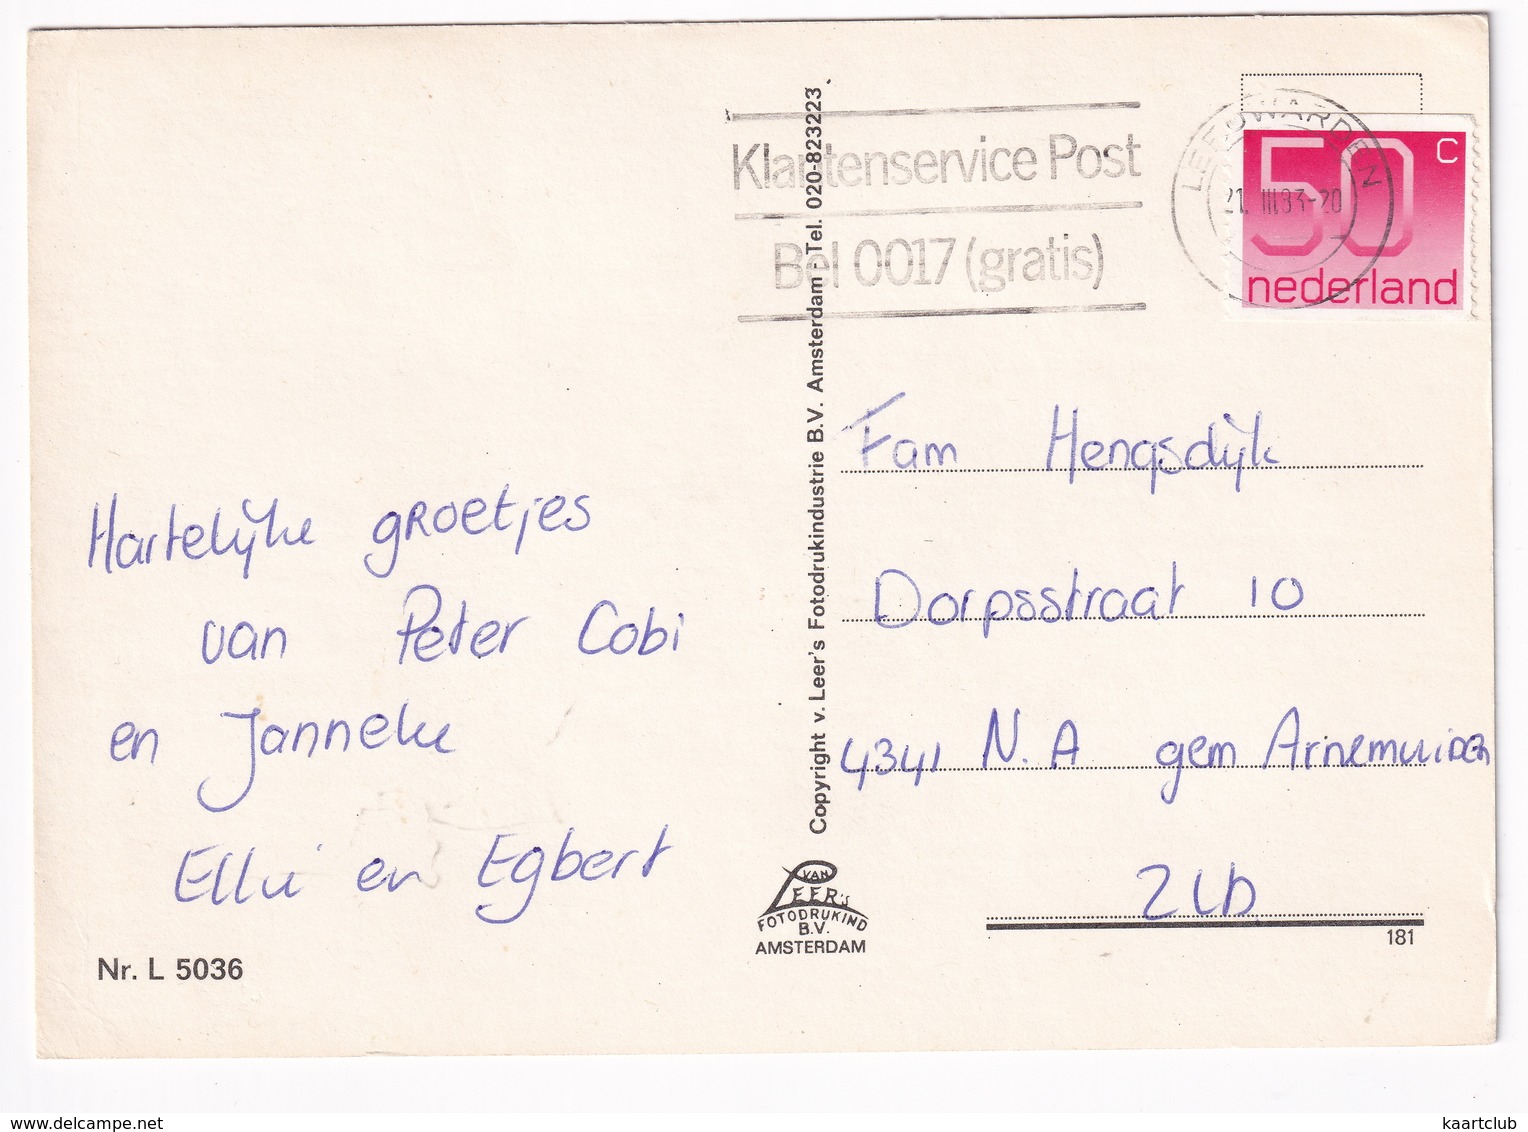 Klantenservice Post
Bel 0017 (gratis)
LEEUWARDEN
21. III.83-20
50 c
nederland
Copyright v. Leer's Fotodrukindustrie B.V. Amsterdam - Tel. 020-823223
Hartelijke groetjes
van Peter Cobi
en Janneke
Ellie en Egbert
Nr. L 5036
Fam Hengsdijk
Dorpsstraat 10
4341 N.A gem Arnemuiden
ZLD
VAN
LEER'S
FOTODRUKIND
B.V.
AMSTERDAM
181
delcampe.net
kaartclub